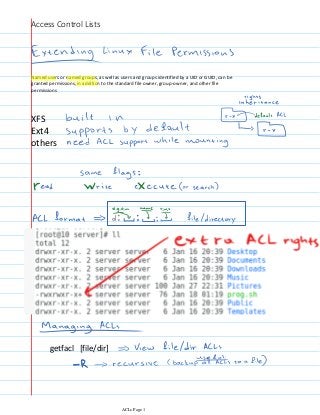 Access Control Lists
Extending Linux File Permissions
Named users or named groups, as well as users and groups identified by a UID or GUID, can be
granted permissions, in addition to the standard file owner, group owner, and other file
permissions
rights
inheritance
r-x
default ACL
r-x
XFS built in
Ext4 supports by default
others need ACL support while mounting
same flags:
read write eXecute (or search)
ACL format ⇒ file/directory
[root@10 server]# ll
extra ACL rights
total 12
drwxr-xr-x. 2 server server 6 Jan 16 20:39 Desktop
drwxr-xr-x. 2 server server 6 Jan 16 20:39 Documents
drwxr-xr-x. 2 server server 6 Jan 16 20:39 Downloads
drwxr-xr-x. 2 server server 6 Jan 16 20:39 Music
drwxr-xr-x. 2 server server 100 Jan 27 22:31 Pictures
-rwxrwxr-x+ 2 server server 76 Jan 18 01:19 prog.sh
drwxr-xr-x. 2 server server 6 Jan 16 20:39 Public
drwxr-xr-x. 2 server server 6 Jan 16 20:39 Templates
Managing ACLs
getfacl [file/dir] ⇒ View file/dir ACLs
-R ⇒ recursive (backup of ACLs to a file)
useful
ACLs Page 1